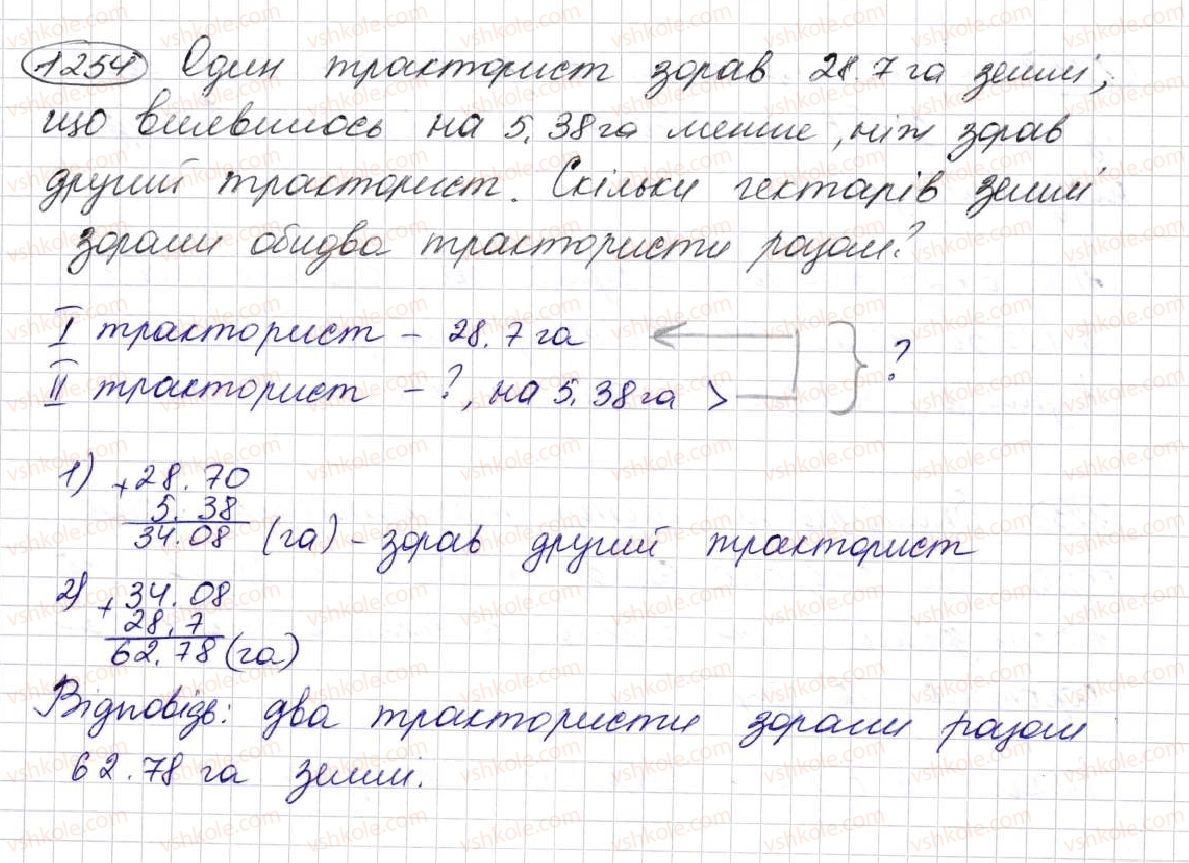 1254 Один тракторист зорав 28.7 га землі,
що виявилось на 5,38 га менше, ніж зорав
другий тракторист. Скільки гектарів землі
зорали обидва трактористи разом?
I тракторист – 28.7 га
II тракторист – ?, на 5.38 га > ?
1) +28.70
5.38
34.08 (га) – зорав другий тракторист
2) +34.08
28.7
62.78 (га)
Відповідь: два трактористи зорали разом
62.78 га землі.